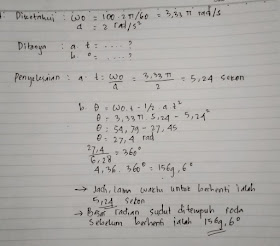 Diketahui : ωo = 100 . 2π/60 = 3,33 π rad/s
α = 2 rad/s²
Ditanya : a t = .... ?
b θ = .... ?
Penyelesaian : a. t = ωo/α = 3,33 π/2 = 5,24 sekon
b. θ = ωo.t - 1/2 . α t²
θ = 3,33 π 5,24 - 5,24²
θ = 54,79 - 27,45
θ = 27,4 rad
27,4/6,28 = 360°
4,36 . 360° = 1569,6°
→ Jadi, lama waktu untuk berhenti ialah
5,24 sekon
→ Besar radian sudut ditempuh roda
sebelum berhenti ialah 1569,6°